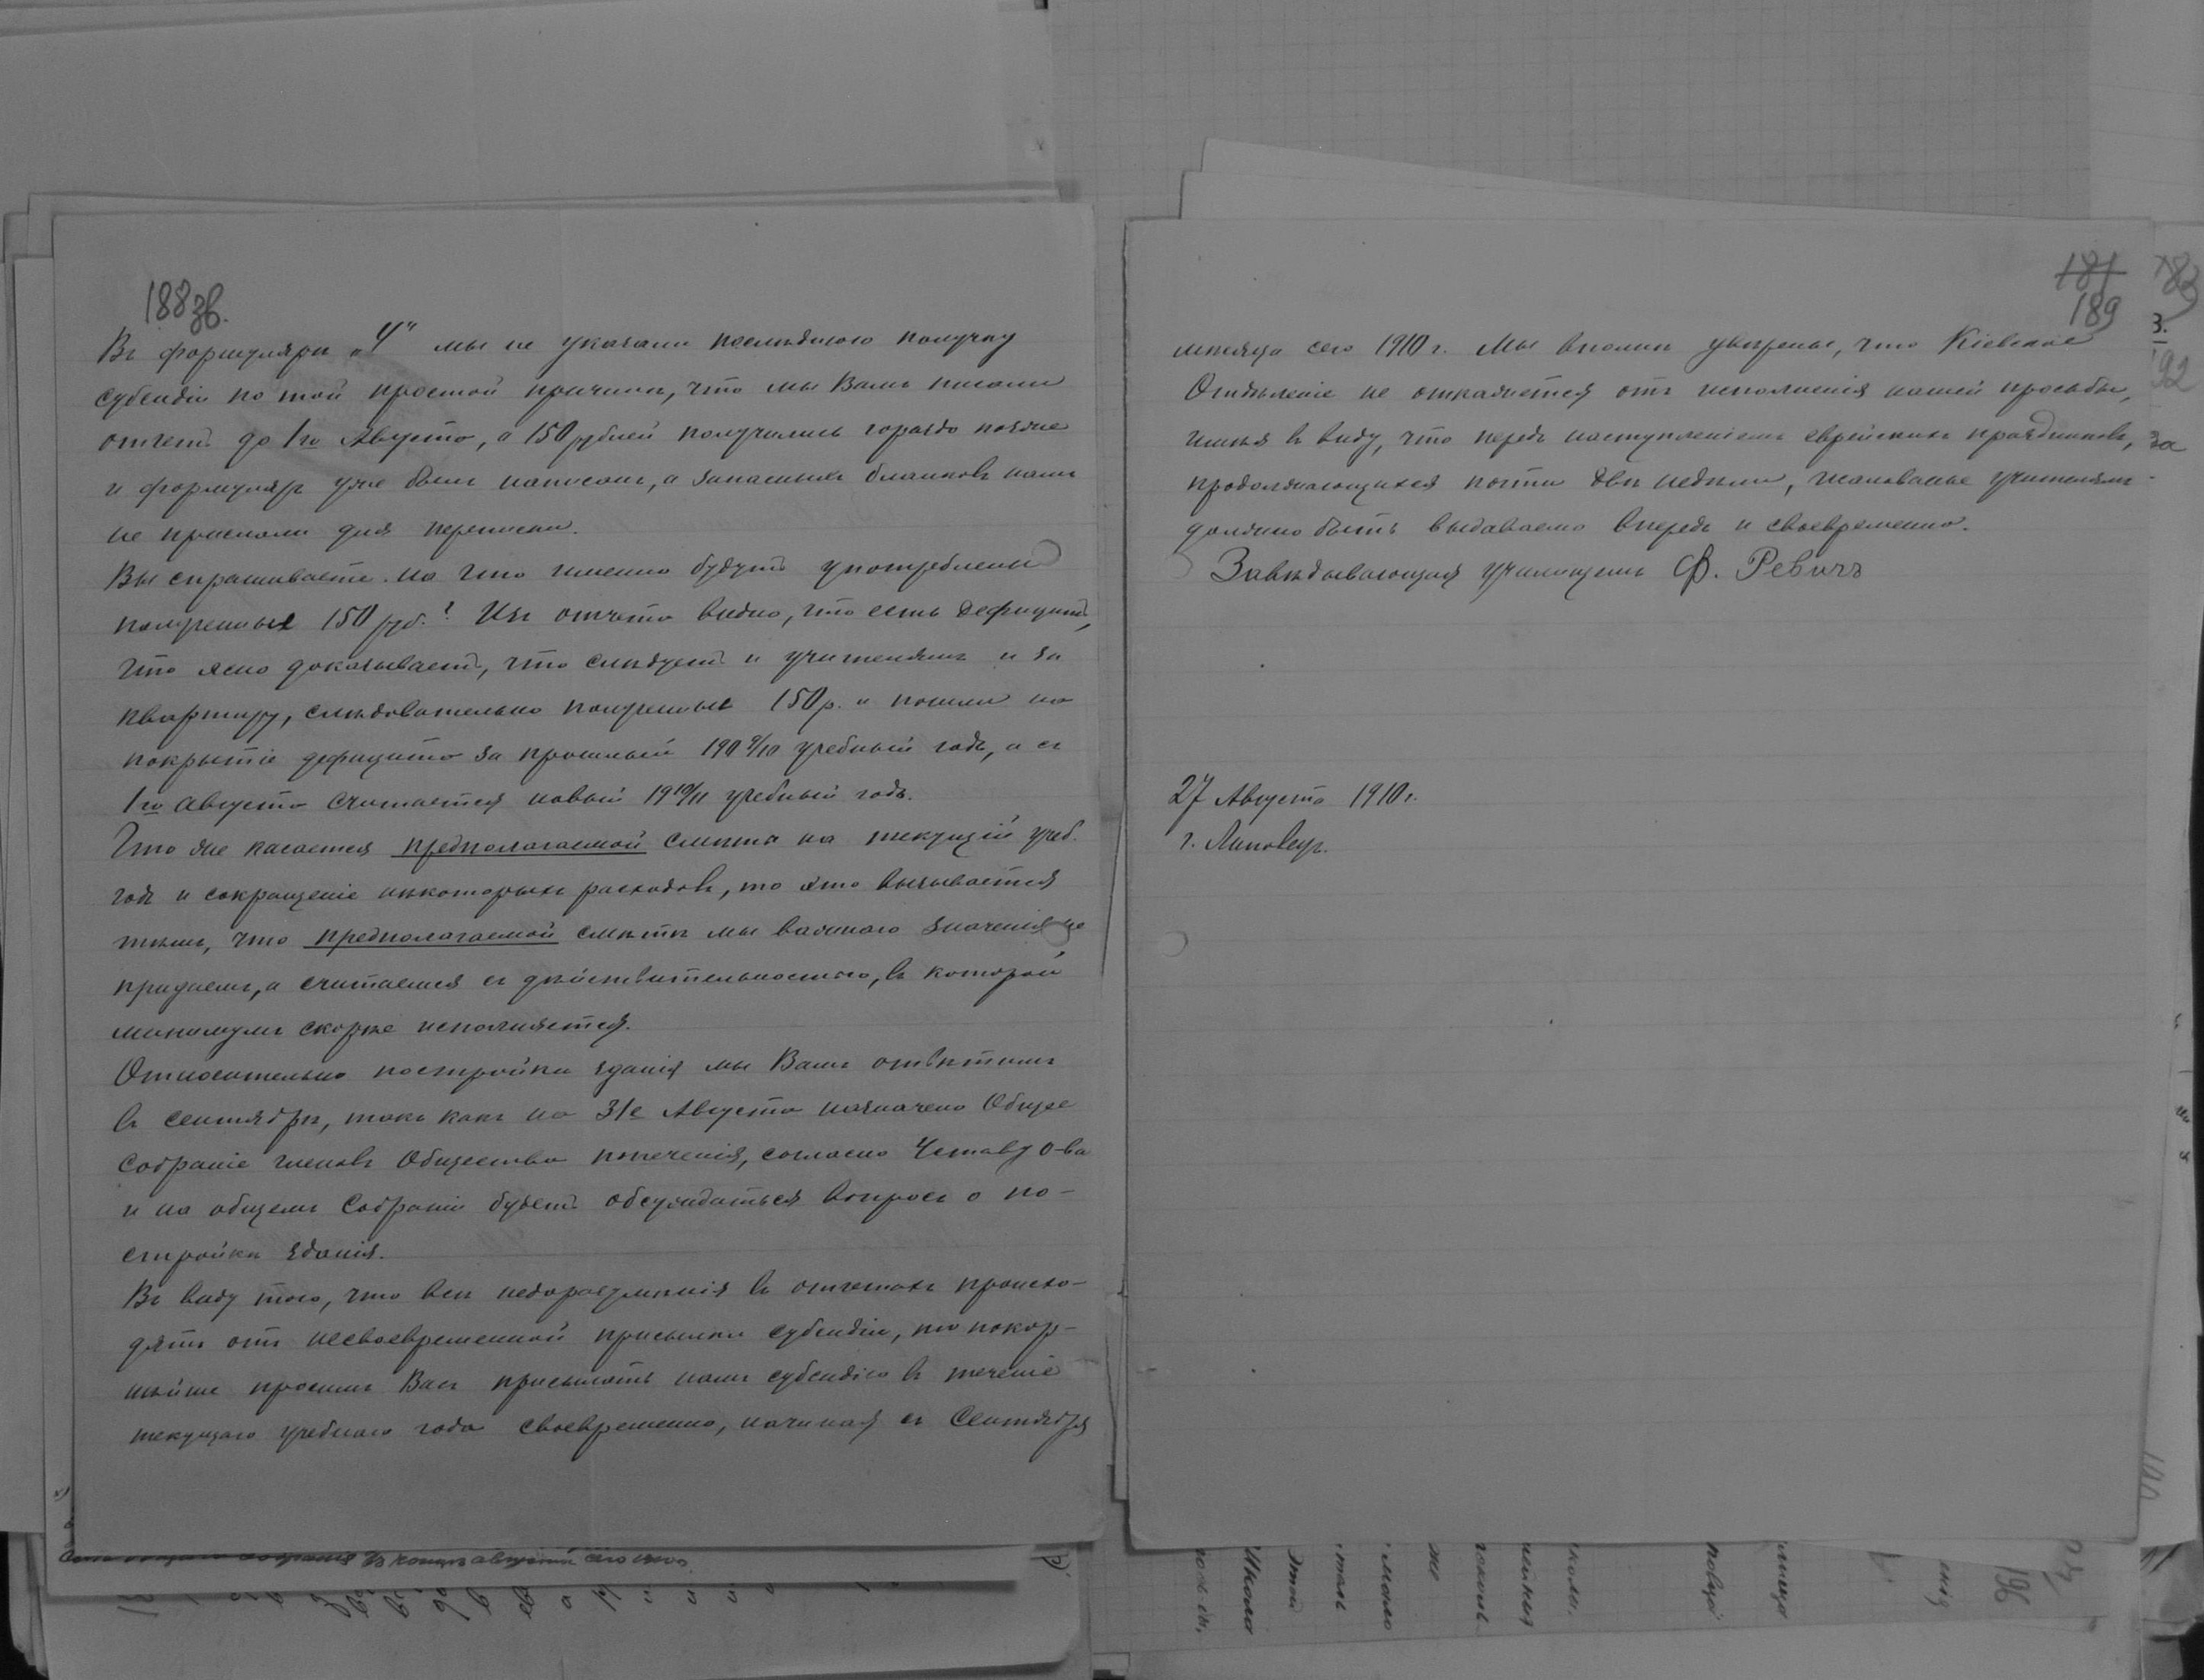 188зв.
Въ формулярѣ „Ч" мы не указали послѣднюю получку
субсидіи по той простой причинѣ, что мы Вамъ писали
отчетъ до 1го Августа, а 150 рублей получились гораздо позднее
и формуляръ уже былъ написанъ, а запасныхъ бланковъ намъ
не прислали для переписки.
Вы спрашиваете на что именно будутъ употреблены
полученные 150 руб.? Изъ отчета видно, что есть дефицитъ,
что ясно доказываетъ, что слѣдуетъ и учителямъ и за
квартиру, слѣдовательно полученные 150 р. и пошли на
покрытіе дефицита за прошлый 1909/10 учебный годъ, а съ
1го Августа считается новый 1910/11 учебный годъ.
Что же касается предполагаемой смѣты на текущій учеб.
годъ и сокращеніе нѣкоторыхъ расходовъ, то это вызывается
тѣмъ, что предполагаемой смѣтѣ мы важнаго значенія не
придаемъ, а считаемся съ дѣйствительностью, въ которой
минимумъ скорѣе исполняется.
Относительно постройки зданія мы Вамъ отвѣтимъ
въ Сентябрѣ, такъ какъ на 31е Августа назначено Общее
Собраніе членовъ Общества попеченія, согласно Уставу О-ва
и на общемъ Собраніи будетъ обсуждаться вопросъ о по-
стройкѣ зданія.
Въ виду того, что всѣ недоразумѣнія въ отчетахъ происхо-
дятъ отъ несвоевременной присылки субсидіи, то покор-
нѣйше просимъ Васъ присылать намъ субсидію въ теченіе
текущаго учебнаго года своевременно, начиная съ Сентября
181
189
мѣсяца сего 1910 г. Мы вполнѣ увѣрены, что Кіевское
Отдѣленіе не откажется отъ исполненія нашей просьбы,
имѣя въ виду, что передъ наступленіемъ еврейскихъ праздниковъ,
продолжающихся почти двѣ недѣли, жалованье учителямъ
должно быть выдаваемо впередъ и своевременно.
Завѣдывающая училищемъ Ф. Ревичъ
27 Августа 1910 г.
г. Липовецъ.
192
за
196